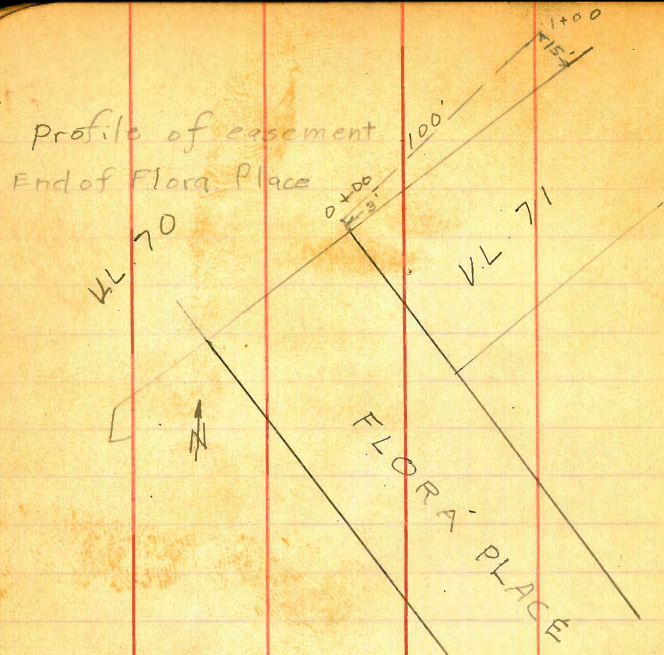 Profile of easement
End of Flora Place
1+00
15'
100'
0+00
3'
V.L 70
V.L 71
N
FLORA PLACE